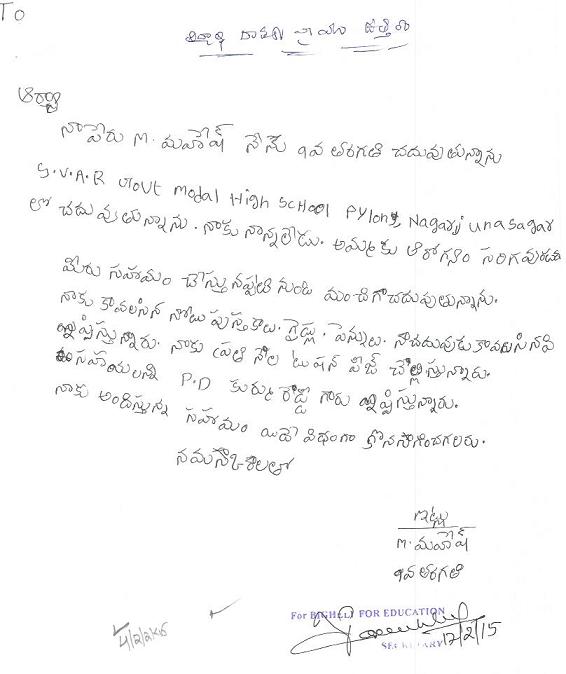 To
విద్యార్థి రాయు ప్రాయి ఉత్తరం
ఆర్యా
నాపేరు M. మహేష్ నేను 9వ తరగతి చదువుతున్నాను
S.V.A.R Govt Modal High School Pylon, Nagarjunasagar
లో చదువుతున్నాను. నాకు నాన్నలేడు. అమ్మకు ఆరోగ్యం సరిగవుండదు
మీరు సహాయం చేస్తునప్పటి నుండి మంచిగాచదువుతున్నాను.
నాకు కావలసిన నోటుపుస్తకాలు. గైడ్లు. పెన్నులు. నాచదువుకు కావలసినవి
ఇప్పిస్తున్నారు. నాకు ప్రతి నెల టుషన్ ఫీజ్ చెల్లిస్తున్నారు.
సహాయలన్ని P.D కుర్మ రెడ్డి గారు ఇప్పిస్తున్నారు.
నాకు అందిస్తున్న సహాయం యిదే విధంగా కొనసాగించగలరు.
నమస్కారాలతో
ఇట్లు
M. మహేష్
9వ తరగతి
For BIGHELP FOR EDUCATION
12/2/15
SECRETARY